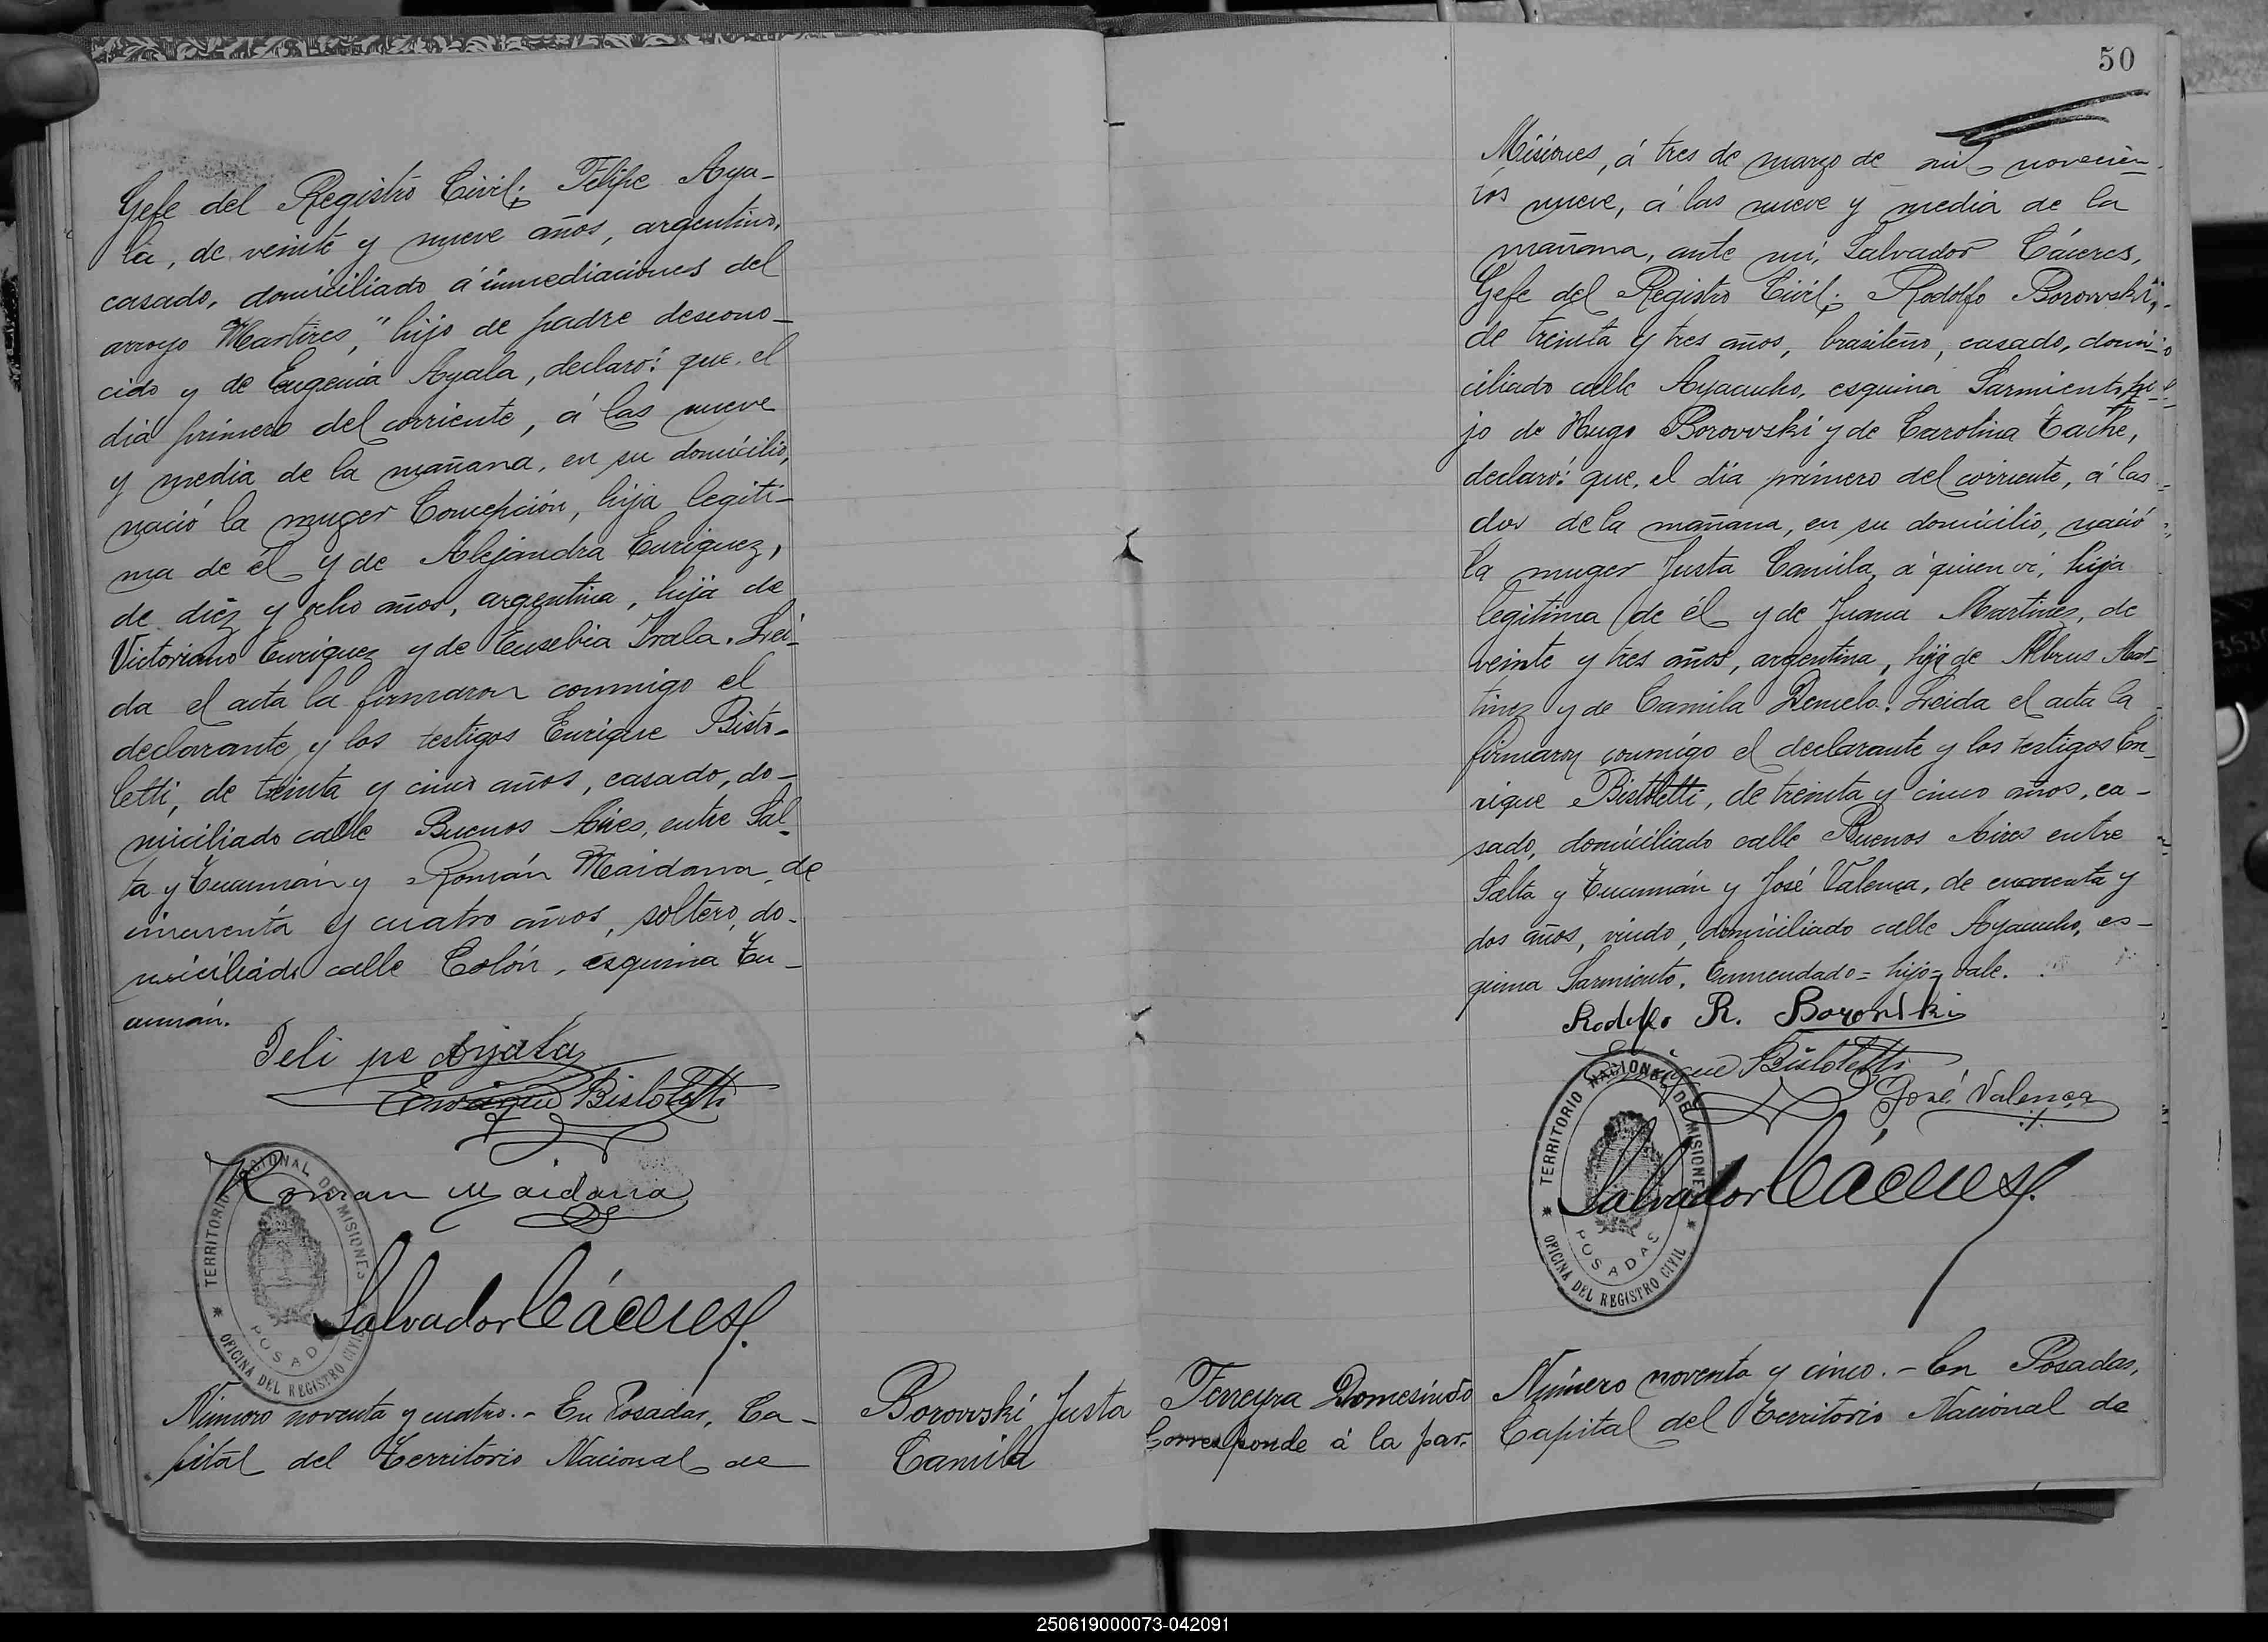 Gefe del Registro Civil; Felipe Aya-
la, de veinte y nueve años, argentino,
casado, domiciliado á inmediaciones del
arroyo "Martires," hijo de padre descono-
cido y de Eugenia Ayala, declaró: que, el
dia primero del corriente, á las nueve
y media de la mañana, en su domicilio,
nació la muger Concepción, hija legiti-
ma de él y de Alejandra Enriquez,
de diez y ocho años, argentina, hija de
Victoriano Enriquez y de Eusebia Irala. Lei-
da el acta la firmaron conmigo el
declarante y los testigos Enrique Bisto-
letti, de treinta y cinco años, casado, do-
miciliado calle Buenos Aires, entre Sal-
ta y Tucumán y Román Maidana, de
cincuenta y cuatro años, soltero, do-
miciliado calle Colón, esquina Tu-
cumán.
Feli pe Ayala
Enrique Bistoletti
Roman Maidana
TERRITORIO NACIONAL DE MISIONES
POSADAS
OFICINA DEL REGISTRO CIVIL
Salvador Cáceres
Número noventa y cuatro.- En Posadas, Ca-
pital del Territorio Nacional de
Borovvski Justa
Camila
50
Misiones, á tres de marzo de mil novecien-
tos nueve, á las nueve y media de la
mañana, ante mi, Salvador Cáceres,
Gefe del Registro Civil; Rodolfo Borovvski,
de treinta y tres años, brasileño, casado, domi-
ciliado calle Ayacucho, esquina Sarmiento, hi-
jo de Hugo Borovvski y de Carolina Tache,
declaró: que, el dia primero del corriente, á las
dos de la mañana, en su domicilio, nació
la muger Justa Camila, á quien vi, hija
legitima de él y de Juana Martinez, de
veinte y tres años, argentina, hija de Mar-
tinez y de Camila Benielo. Leida el acta la
firmaron conmigo el declarante y los testigos En-
rique Bistoletti, de treinta y cinco años, ca-
sado, domiciliado calle Buenos Aires entre
Salta y Tucumán y José Valença, de cuarenta y
dos años, viudo, domiciliado calle Ayacucho, es-
quina Sarmiento. Enmendado = hijo = vale.
Rodolfo R. Borowski
Enrique Bistoletti
José Valença
TERRITORIO NACIONAL DE MISIONES
POSADAS
OFICINA DEL REGISTRO CIVIL
Salvador Cáceres
Ferreyra Domesindo
Corresponde á la par.
Número noventa y cinco.- En Posadas,
Capital del Territorio Nacional de
250619000073-042091